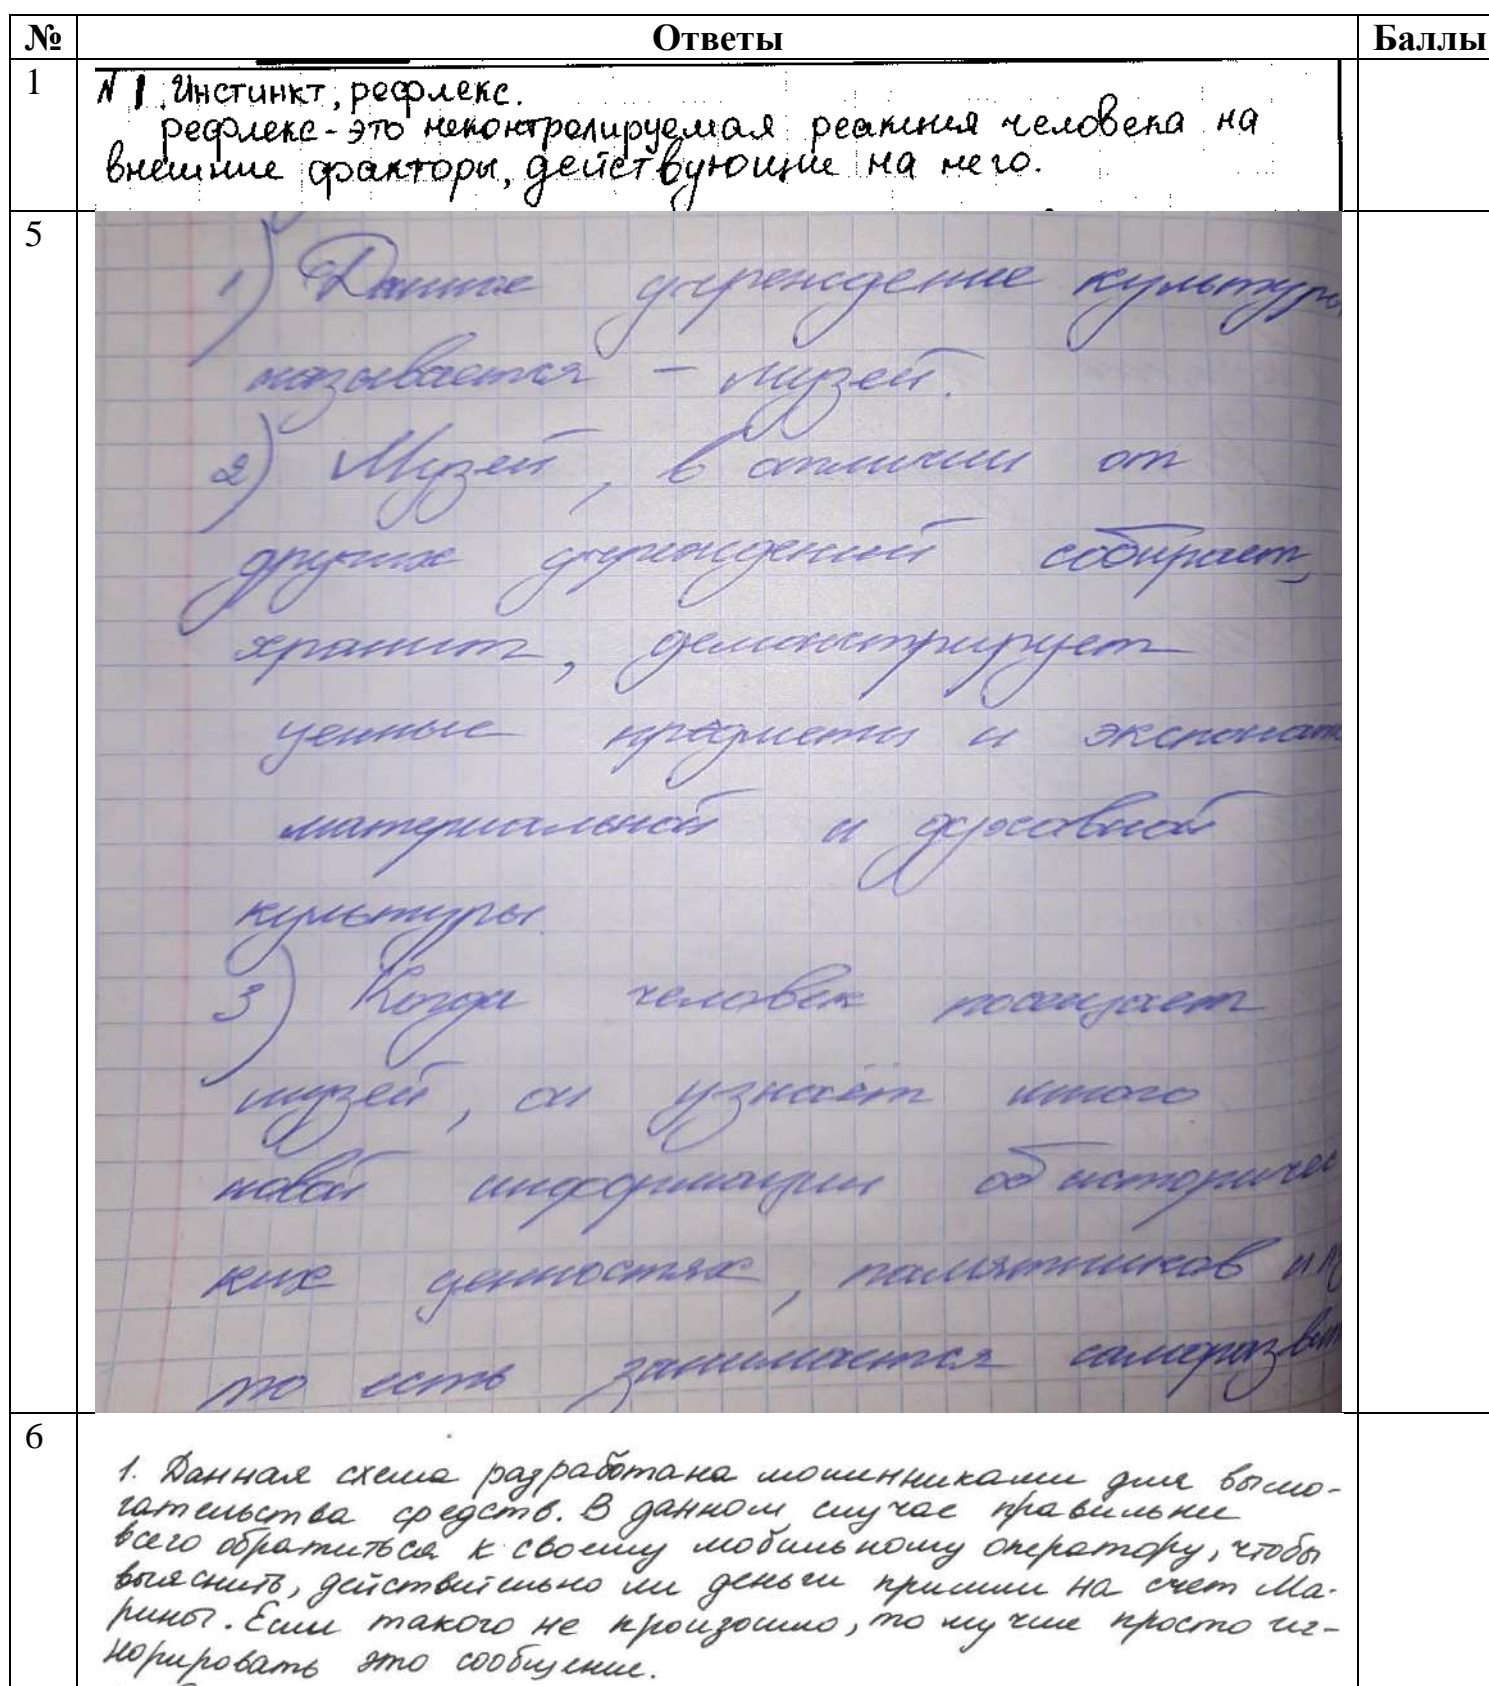 № Ответы Баллы
1
N 1. Инстинкт, рефлекс.
рефлекс - это неконтролируемая реакция человека на
внешние факторы, действующие на него.
5
1) Данное учреждение культуры
называется - музей.
2) Музей, в отличии от
других учреждений собирает,
хранит, демонстрирует
ценные предметы и экспонат
материальной и духовной
культуры.
3) Когда человек посещает
музей, он узнаёт много
новой информации об историчес
ких ценностях, памятников
то есть занимается саморазвит
6
1. Данная схема разработана мошенниками для вымо-
гательства средств. В данном случае правильне
всего обратиться к своему мобильному оператору, чтобы
выяснить, действительно ли деньги пришли на счет Ма-
рины. Если такого не произошло, то лучше просто иг-
норировать это сообщение.